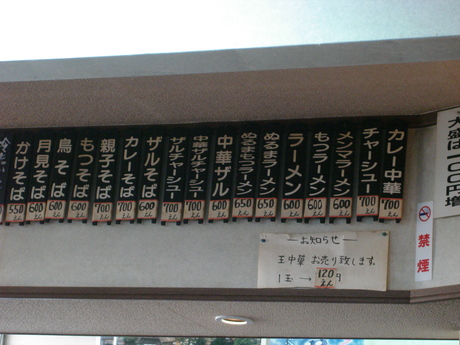 カレー中華 700えん
チャーシュー 700えん
メンマラーメン 600えん
もつラーメン 600えん
ラーメン 600えん
ぬるまラーメン 650えん
ぬるまもつラーメン 650えん
中華ザル 600えん
中華ザルチャーシュー 700えん
ザルチャーシュー 700えん
ザルそば 600えん
カレーそば 700えん
親子そば 700えん
もつそば 600えん
鳥そば 600えん
月見そば 600えん
かけそば 550えん
大盛は100円増
禁煙
―お知らせ―
玉中華 お売り致します。
1玉→120円